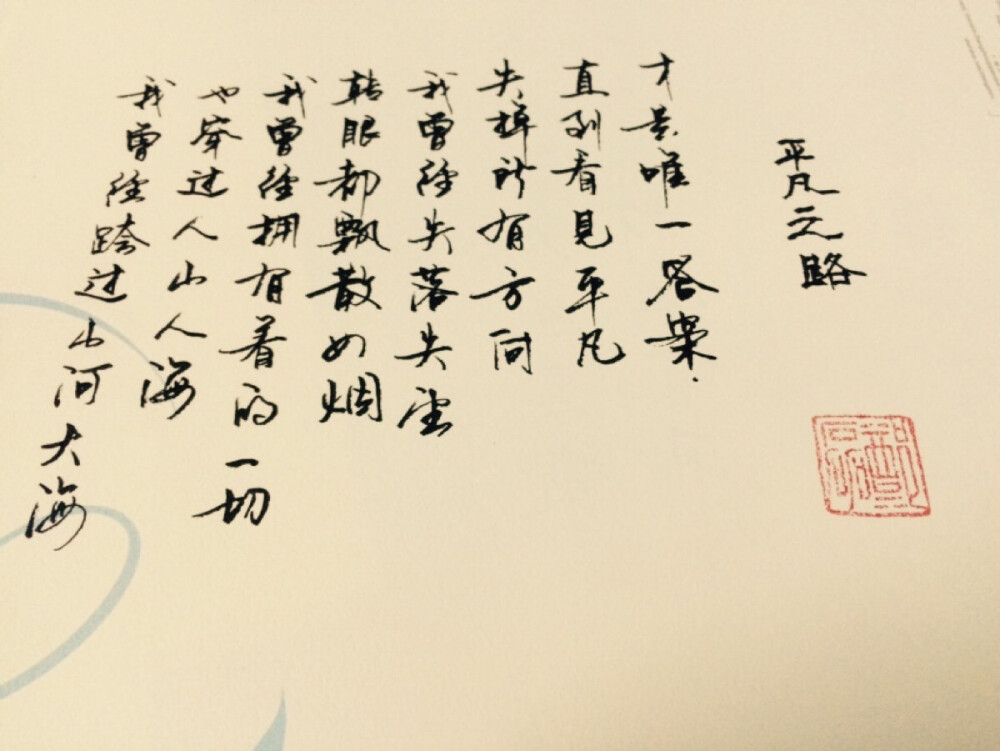 平凡之路
我曾经跨过山河大海
也穿过人山人海
我曾经拥有着的一切
转眼都飘散如烟
我曾经失落失望
失掉所有方向
直到看見平凡
才是唯一答案.